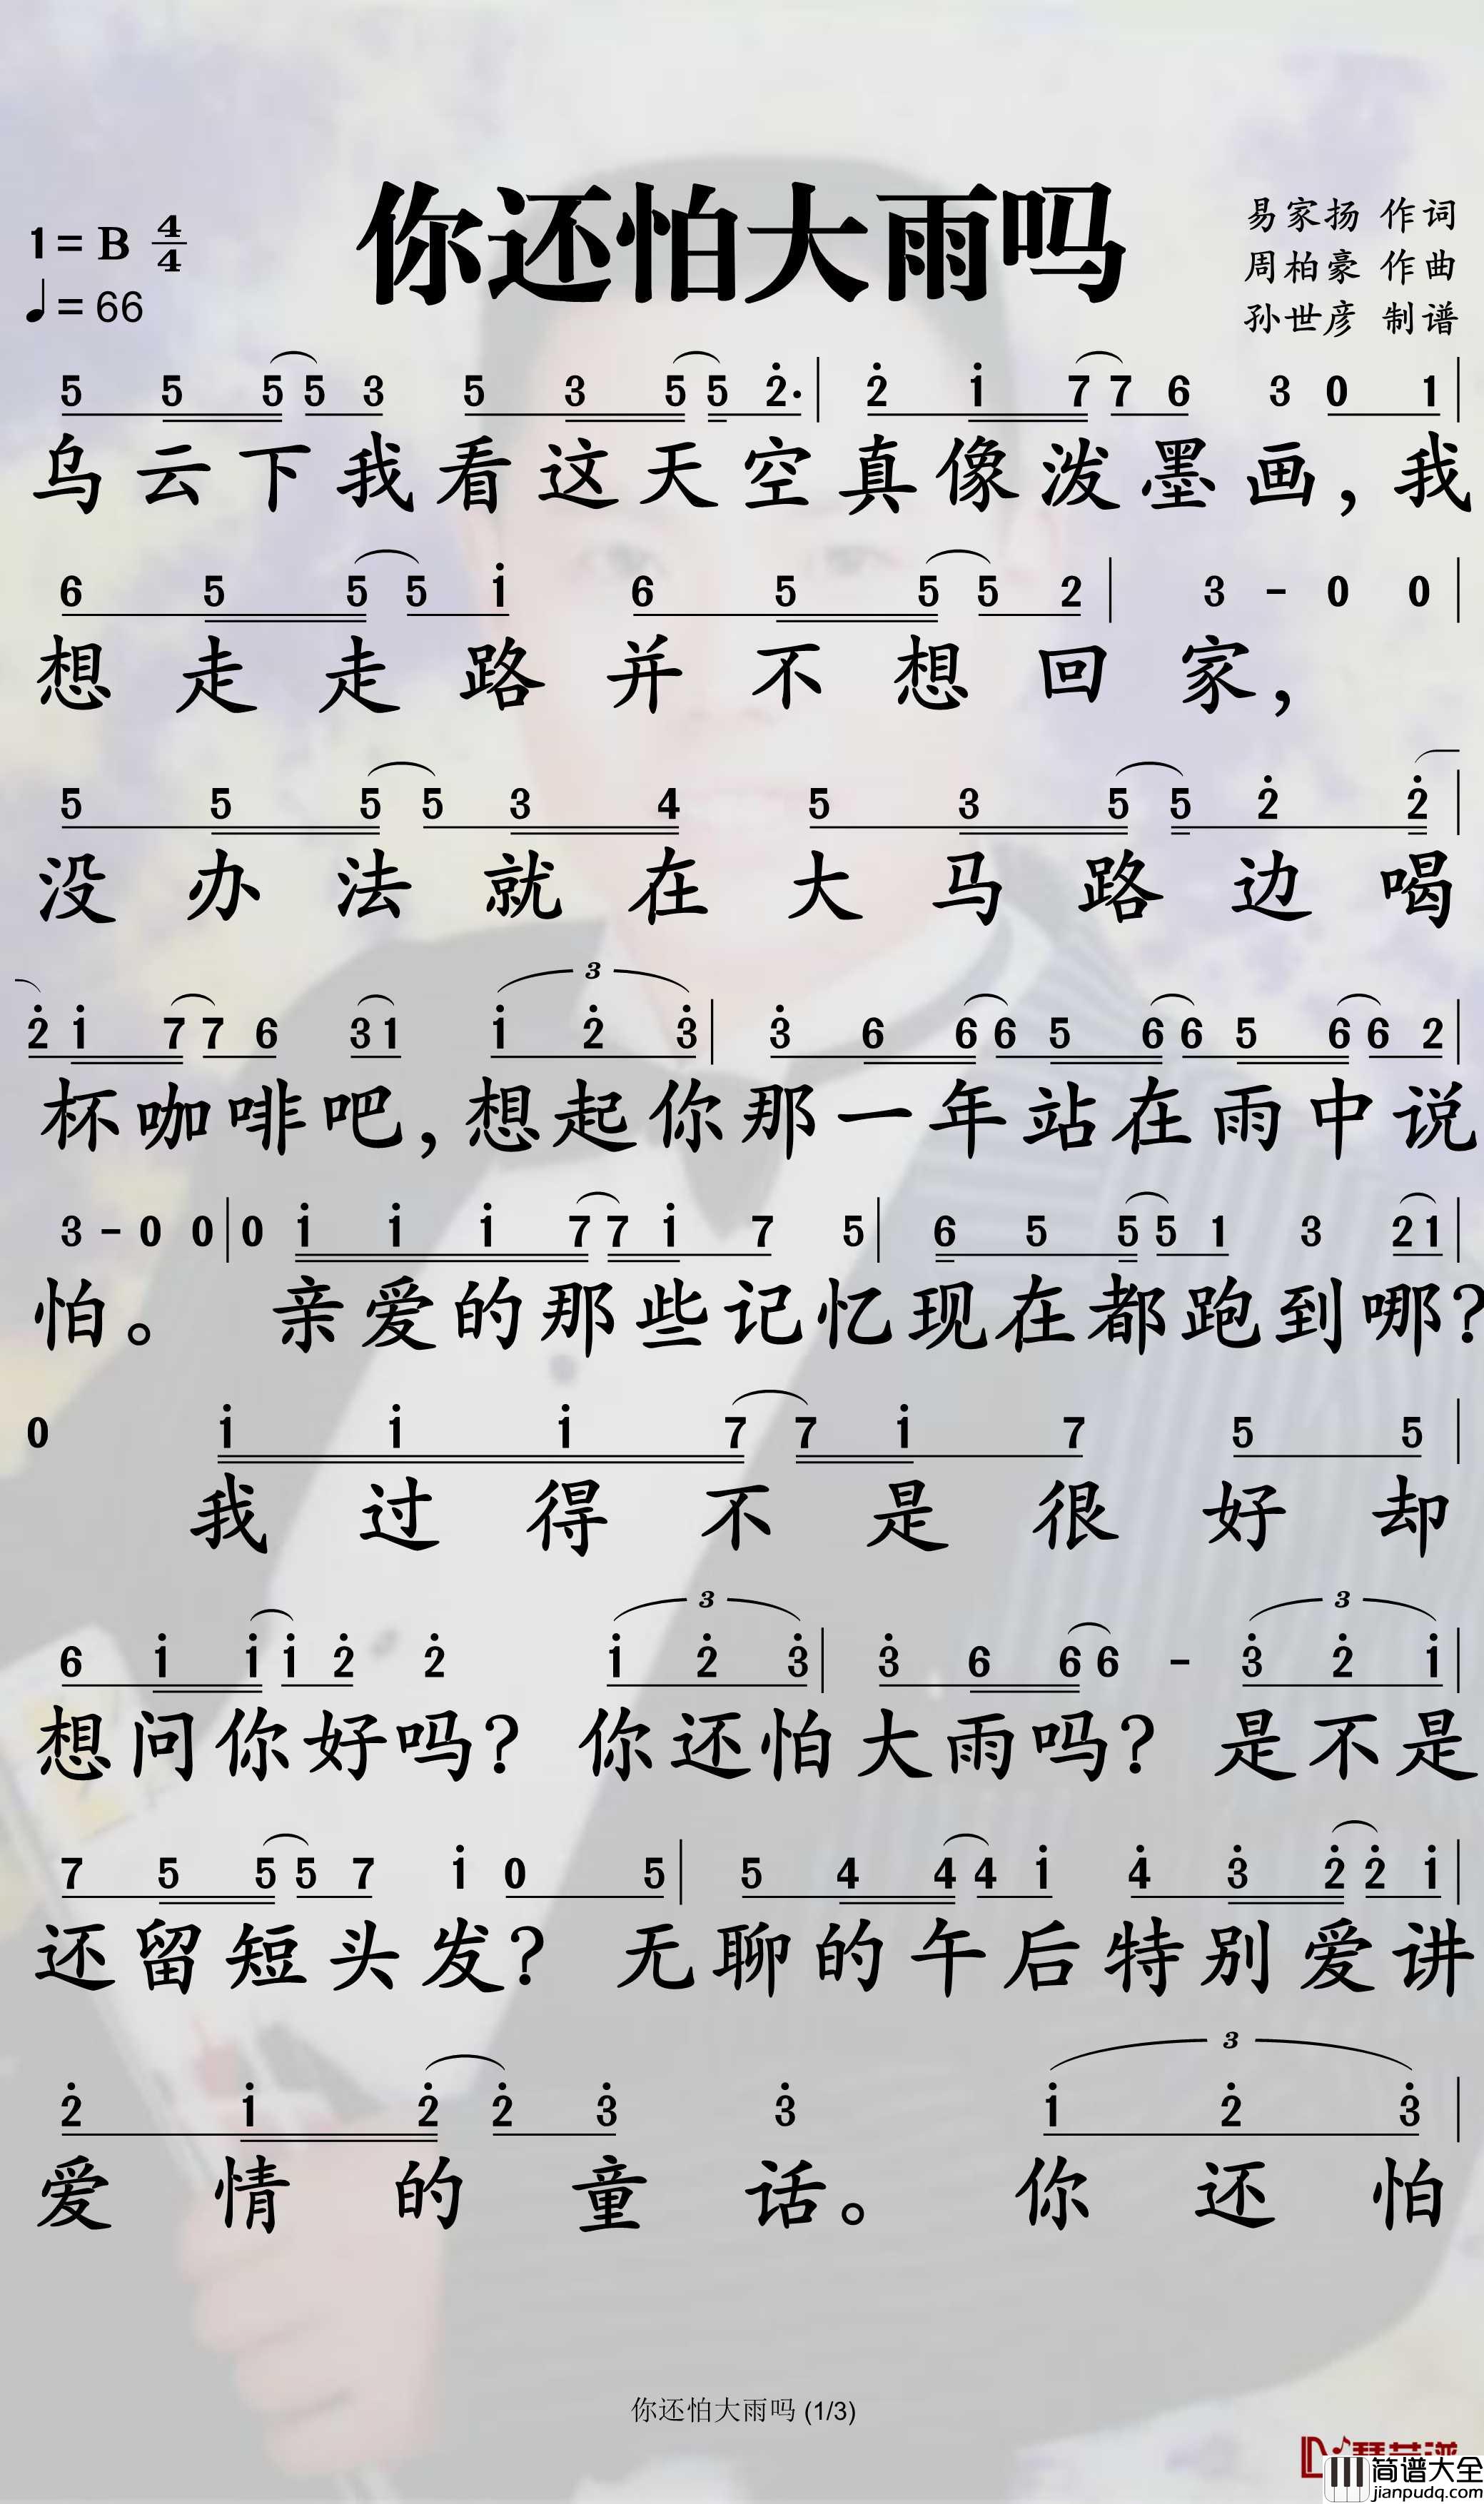 你还怕大雨吗
1=B 4/4
♩=66
易家扬 作词
周柏豪 作曲
孙世彦 制谱
5 5 5 5 3 5 3 5 5 2̇· | 2̇ 1̇ 7 7 6 3 0 1 |
乌云下我看这天空真像泼墨画，我
6 5 5 5 1̇ 6 5 5 5 2 | 3 - 0 0 |
想走走路并不想回家，
5 5 5 5 3 4 5 3 5 5 2̇ 2̇ |
没办法就在大马路边喝
2̇ 1̇ 7 7 6 3 1 3 1̇ 2̇ 3̇ | 3̇ 6 6 6 5 6 6 5 6 6 2 |
杯咖啡吧，想起你那一年站在雨中说
3 - 0 0 | 0 1̇ 1̇ 1̇ 7 7 1̇ 7 5 | 6 5 5 5 1 3 2 1 |
怕。 亲爱的那些记忆现在都跑到哪？
0 1̇ 1̇ 1̇ 7 7 1̇ 7 5 5 |
我过得不是很好却
3 3
6 1̇ 1̇ 1̇ 2̇ 2̇ 1̇ 2̇ 3̇ | 3̇ 6 6 6 - 3̇ 2̇ 1̇ |
想问你好吗？ 你还怕大雨吗？ 是不是
7 5 5 5 7 1̇ 0 5 | 5 4 4 4 1̇ 4̇ 3̇ 2̇ 2̇ 1̇ |
还留短头发？ 无聊的午后特别爱讲
3
2̇ 1̇ 2̇ 2̇ 3̇ 3̇ 1̇ 2̇ 3̇ |
爱情的童话。 你还怕
你还怕大雨吗 (1/3)
简谱大全
jianpudq.com